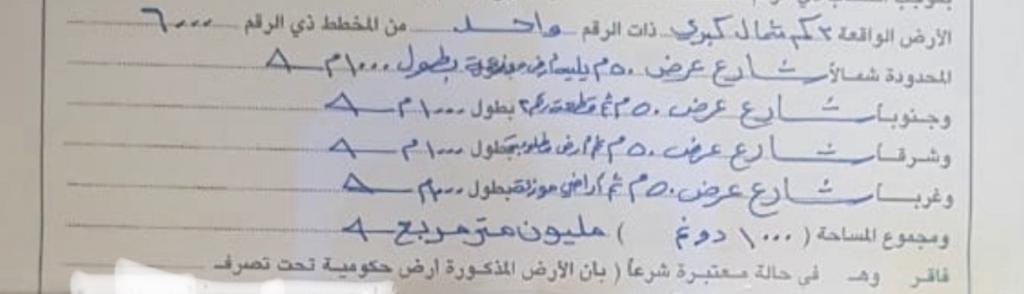 الأرض الواقعة ٢ كم شمال كبري ذات الرقم واحد من المخطط ذي الرقم ٦٠٠٠
المحدودة شمالاً شارع عرض ٥٠ م يليه أرض موزعة بطول ١٠٠٠ م
وجنوبا شارع عرض ٥٠ م ثم قطعة رقم ٢ بطول ١٠٠٠ م
وشرقا شارع عرض ٥٠ م ثم أرض بطول ١٠٠٠ م
وغربا شارع عرض ٥٠ م ثم أراضي موزعة بطول ١٠٠٠ م
ومجموع المساحة ( ١٠٠٠ دونم ) مليون متر مربع
فاقر وهـ في حالة معتبرة شرعاً ( بان الأرض المذكورة أرض حكومية تحت تصرف